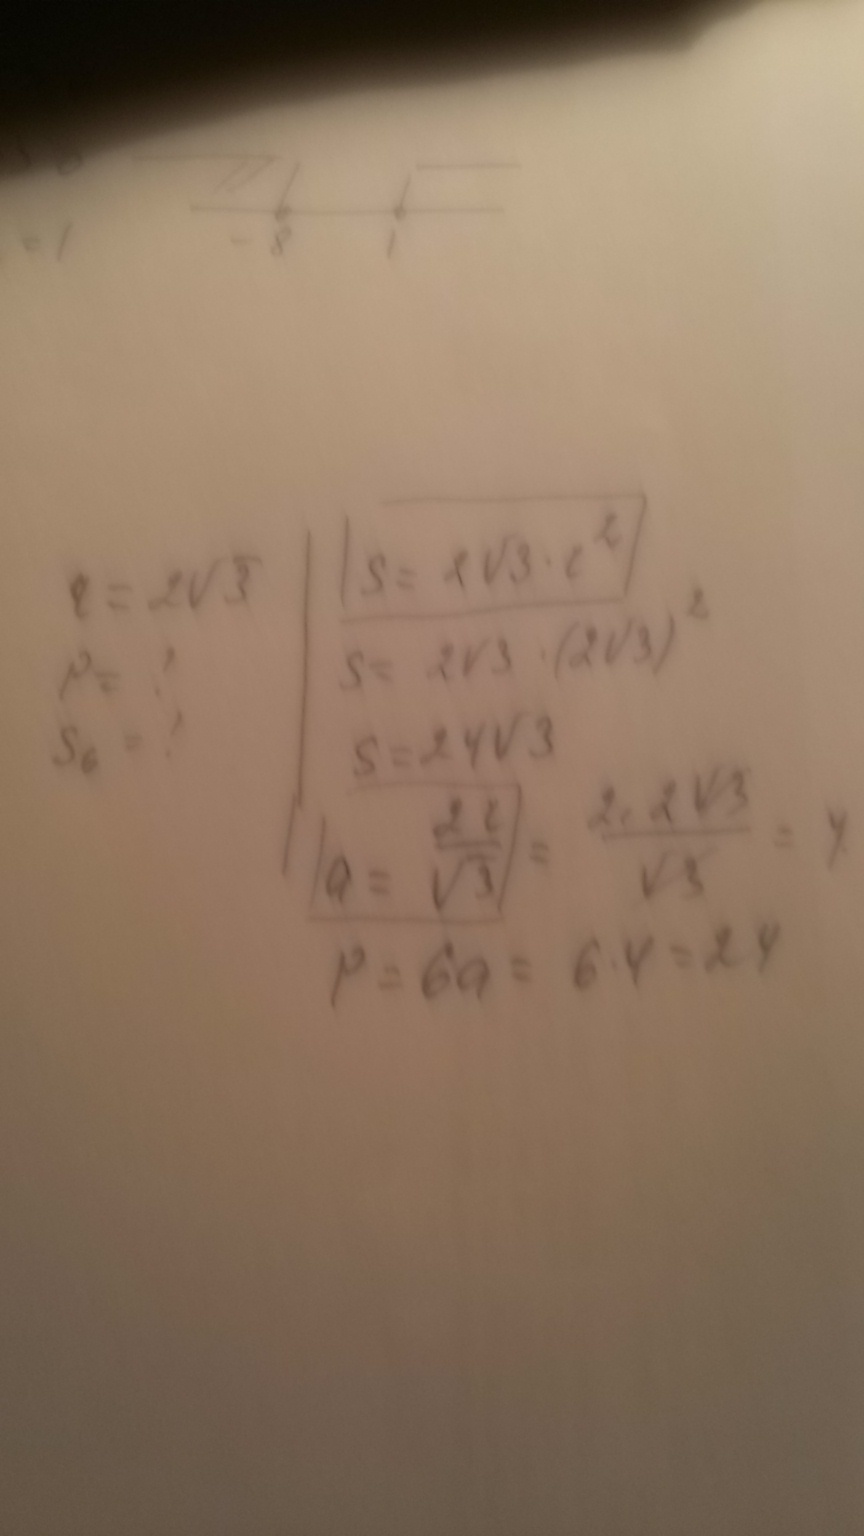 = 1
- 8 1
r = 2√3
P = ?
S₆ = ?
S = 2√3 · r²
S = 2√3 · (2√3)²
S = 24√3
a = 2r/√3 = 2 · 2√3/√3 = 4
P = 6a = 6 · 4 = 24